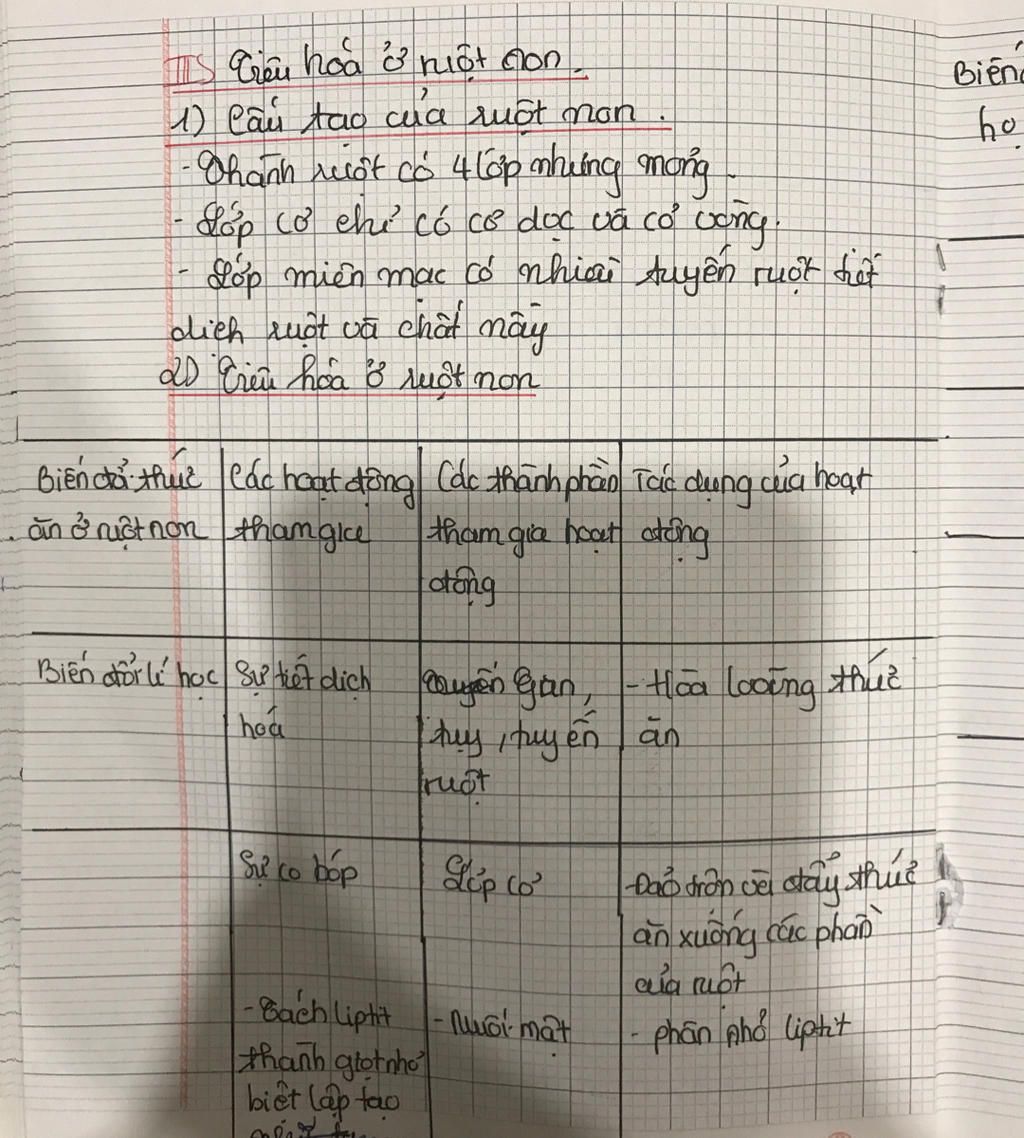 III Tiêu hoá ở ruột non.
1) Cấu tạo của ruột non.
- Thành ruột có 4 lớp nhưng mỏng
- Lớp cơ chỉ có cơ dọc và cơ vòng.
- Lớp niêm mạc có nhiều tuyến ruột tiết
dịch ruột và chất nhầy
2) Tiêu hóa ở ruột non
Biến đổi thức Các hoạt động Các thành phần Tác dụng của hoạt
ăn ở ruột non tham gia tham gia hoạt động
động
Biến đổi lí học Sự tiết dịch Tuyến gan, - Hòa loãng thức
hoá tụy, tuyến ăn
ruột
Sự co bóp Lớp cơ - Đảo trộn và đẩy thức
ăn xuống các phần
của ruột
- Tách lipit - Muối mật - phân nhỏ lipit
thành giọt nhỏ
biệt lập tạo
Biến
họ